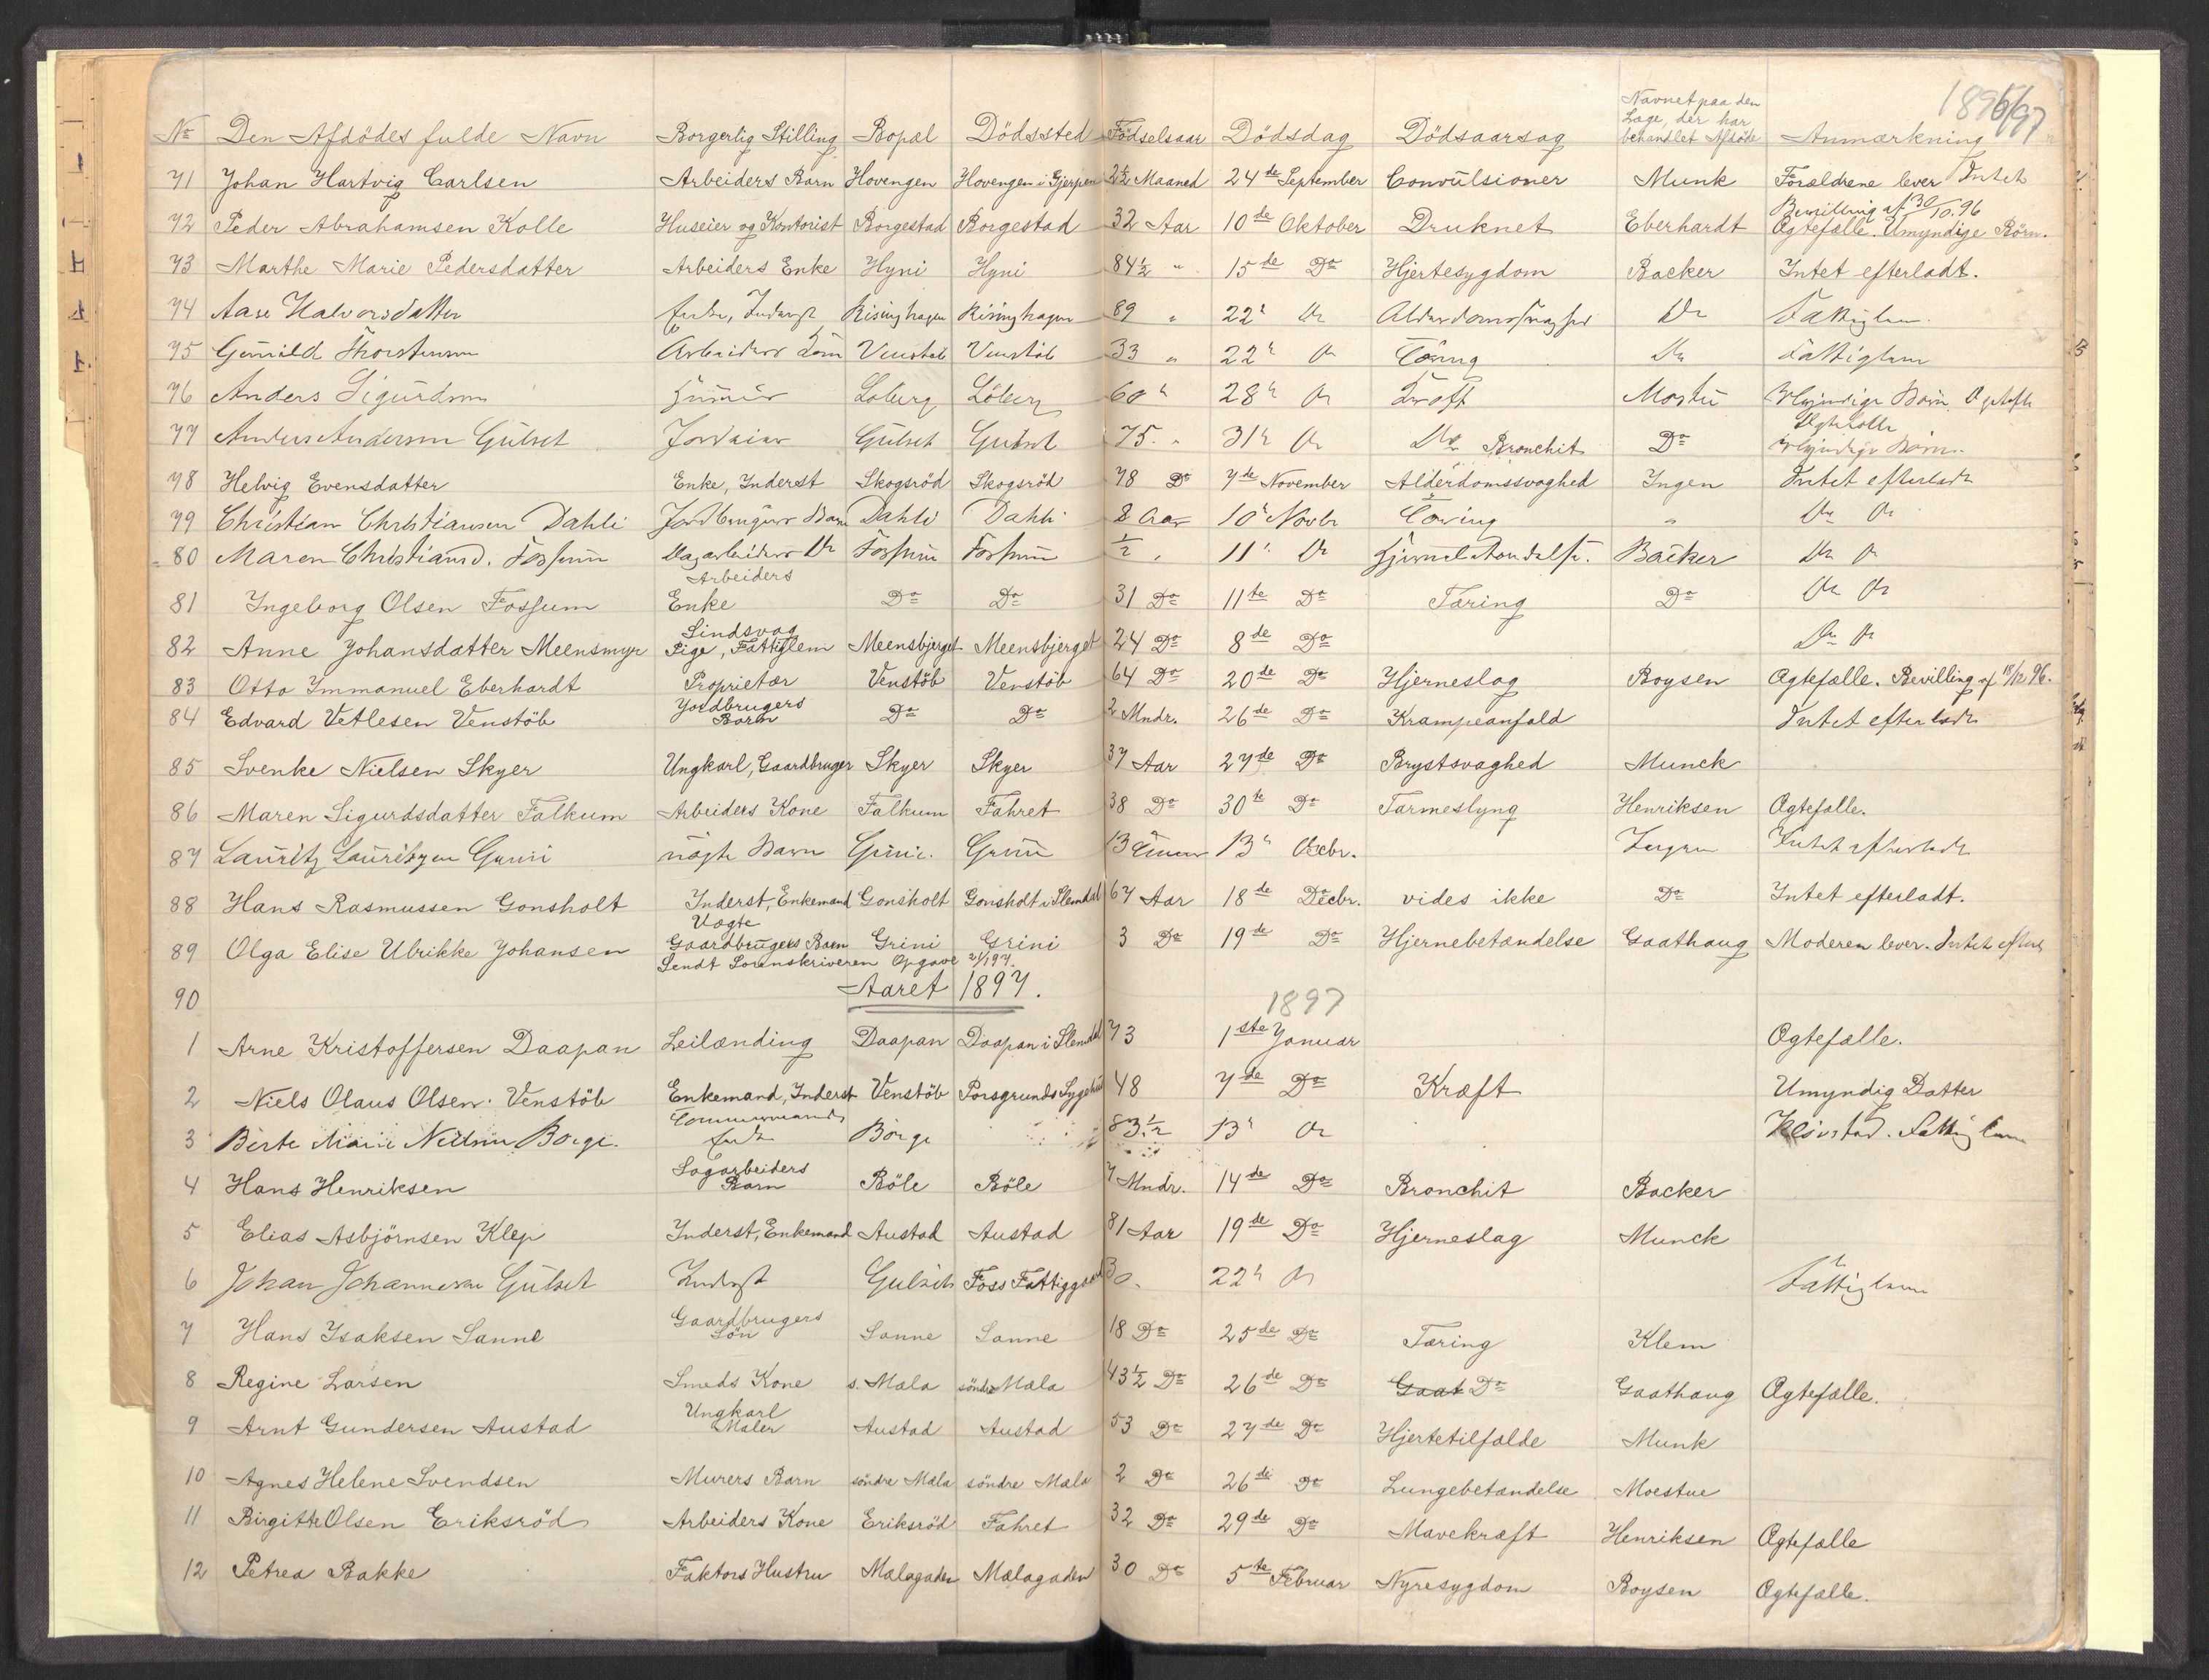 1896/97
Navnet paa den Læge, der har behandlet Afdøde
No Den Afdödes fulde Navn Borgerlig Stilling Bopæl Dödssted Födselsaar Dödsdag Dödsaarsag Anmærkning
71 Johan Hartvig Carlsen Arbeiders Barn Hovengen Hovengen i Gjerpen 2½ Maaned 24de September Convulsioner Munk Forældrene lever Intet
72 Peder Abrahamsen Kolle Huseier og Kontorist Borgestad Borgestad 32 Aar 10de Oktober Druknet Eberhardt Bevilling af 30/10.96 Ægtefælle. Umyndige Börn.
73 Marthe Marie Pedersdatter Arbeiders Enke Hyni Hyni 84½ " 15de Do Hjertesygdom Backer Intet efterladt.
74 Aase Halvorsdatter Enke, Inderst Risinghagen Risinghagen 89 " 22 Do Alderdomssvaghed Do Fattiglem
75 Gunild Thorstensen Arbeiders Venstöb Venstöb 33 " 22 Do Tæring Do Fattiglem
76 Anders Sigurdsen Löberg Löberg 60 28 Do Kræft Moestu Umyndige Börn Ægtef
77 Anders Andersen Gulset Jordeier Gulset Gulset 75 " 31 Do Do Bronchit Do Ægtefælle Umyndige Börn
78 Helvig Evensdatter Enke, Inderst Skogsröd Skogsröd 78 Do 7de November Alderdomssvaghed Ingen Intet efterladt
79 Christian Christiansen Dahli Jordbrugers Barn Dahli Dahli 8 Aar 10 Novbr Tæring " Do Do
80 Maren Christiansd. Fossum Dagarbeiders Do Fossum Fossum ½ " 11 Do Hjernebetændelse. Backer Do Do
81 Ingeborg Olsen Fossum Arbeiders Enke Do Do 31 Do 11te Do Tæring Do Do Do
82 Anne Johansdatter Meensmyr Sindsvag Pige, Fattiglem Meensbjerget Meensbjerget 24 Do 8de Do Do Do
83 Otto Immanuel Eberhardt Proprietær Venstöb Venstöb 64 Do 20de Do Hjerneslag Boysen Ægtefælle. Bevilling af 18/12 96.
84 Edvard Vetlesen Venstöb Jordbrugers Barn Do Do 2 Mndr. 26de Do Krampeanfald Intet efterladt
85 Svenke Nielsen Skyer Ungkarl, Gaardbruger Skyer Skyer 37 Aar 27de Do Brystsvaghed Munck
86 Maren Sigurdsdatter Falkum Arbeiders Kone Falkum Fahret 38 Do 30te Do Tarmeslyng Henriksen Ægtefælle.
87 Lauritz Lauritzen Grini uægte Barn Grini Grini 13 Timer 13 Decbr. Ingen Intet efterladt
88 Hans Rasmussen Gonsholt Inderst, Enkemand Gonsholt Gonsholt i Slemdal 67 Aar 18de Decbr. vides ikke Do Intet efterladt.
89 Olga Elise Ulrikke Johansen Uægte Gaardbrugers Barn Grini Grini 3 Do 19de Do Hjernebetændelse Gaathaug Moderen lever. Intet efterl
Sendt Sorenskriveren Opgave 2/1 97.
90 Aaret 1897. 1897
1 Arne Kristoffersen Daapan Leilænding Daapan Daapan i Slemdal 73 1ste Januar Ægtefælle.
2 Niels Olaus Olsen Venstöb Enkemand, Inderst Venstöb Porsgrunds Sygehus 48 7de Do Kræft Umyndig Datter
3 Berte Marie Nielsen Borge Enke Borge 83½ 13 Do Fattiglem
4 Hans Henriksen Sagarbeiders Barn Böle Böle 7 Mndr. 14de Do Bronchit Backer
5 Elias Asbjörnsen Klep Inderst, Enkemand Austad Austad 81 Aar 19de Do Hjerneslag Munck
6 Johan Johannesen Gulset Inderst Gulset Foss Fattiggaard 30 22 Do Fattiglem
7 Hans Isaksen Sanne Gaardbrugers Sön Sanne Sanne 18 Do 25de Do Tæring Klem
8 Regine Larsen Smeds Kone s. Mæla söndre Mæla 43½ Do 26de Do Gaat Do Gaathaug Ægtefælle.
9 Arnt Gundersen Austad Ungkarl Maler Austad Austad 53 Do 27de Do Hjertetilfælde Munk
10 Agnes Helene Svendsen Murers Barn söndre Mæla söndre Mæla 2 Do 26de Do Lungebetændelse Moestue
11 Birgitte Olsen Eriksröd Arbeiders Kone Eriksröd Fahret 32 Do 29de Do Mavekræft Henriksen Ægtefælle
12 Petrea Bakke Faktors Hustru Mælagaden Mælagaden 30 Do 5te Februar Nyresygdom Boysen Ægtefælle.